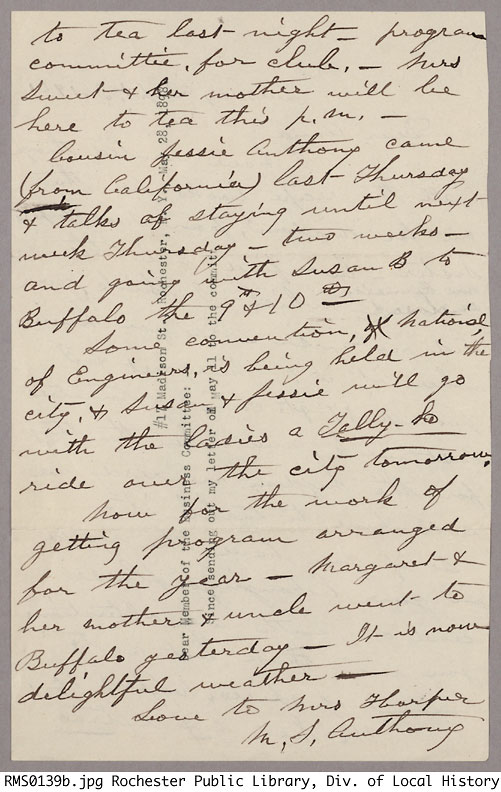 to tea last night — program
committie, for club. — Mrs
Sweet & her mother will be
here to tea this p.m. —
Cousin Jessie Anthony came
(from California) last Thursday
& talks of staying until next
week Thursday — two weeks —
and going with Susan B to
Buffalo the 9th & 10th
Some convention, National,
of Engineers, is being held in the
city, & Susan & Jessie will go
with the ladies a Tally-ho
ride over the city tomorrow.
Now for the work of
getting program arranged
for the year — Margaret &
her mother & uncle went to
Buffalo yesterday — It is now
delightful weather —
Love to Mrs Harper
M. S. Anthony
#17 Madison St., Rochester, N. Y., May 28, 1898
Dear Member of the Business Committee:
Since sending out my letter of May 21 to the committ
RMS0139b.jpg Rochester Public Library, Div. of Local History